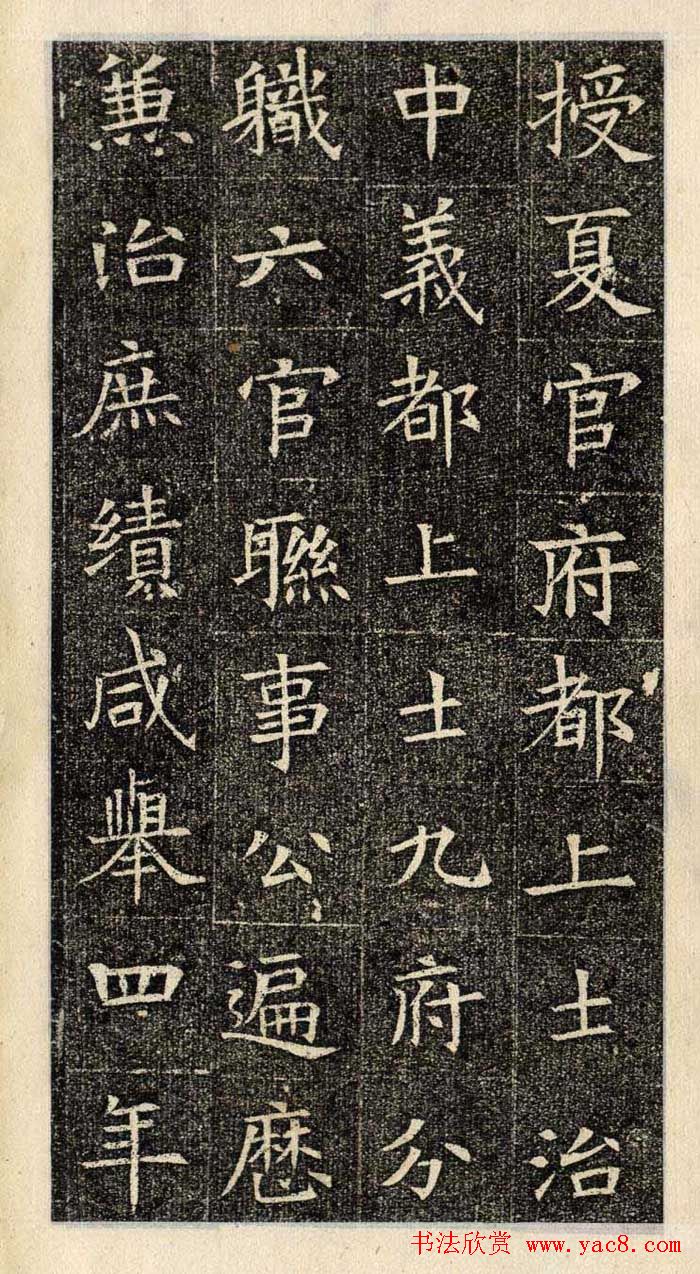 授夏官府都上士治
中義都上士九府分
軄六官聮事公遍懕
兼治庶績咸舉四年
书法欣赏 www.yac8.com